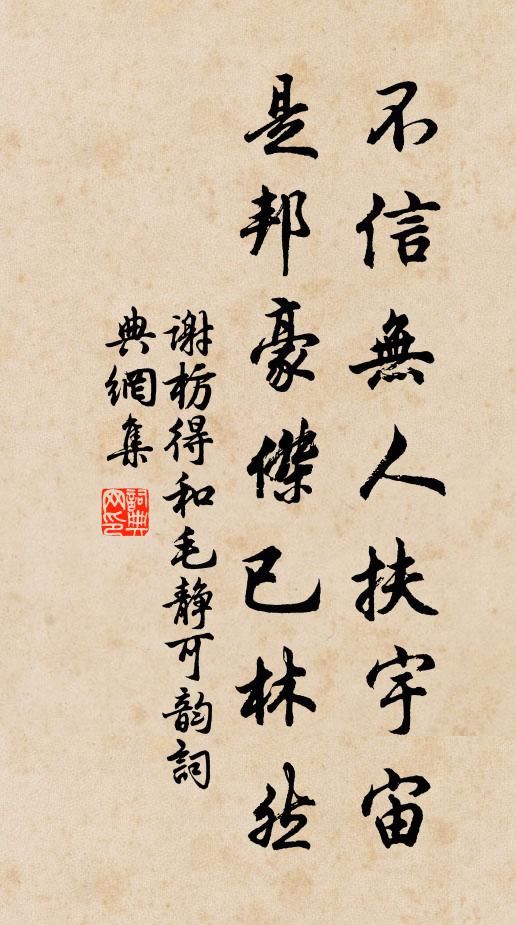 不信無人扶宇宙
是邦豪傑已林然
谢枋得和毛静可韵詞
典網集
詞典网印